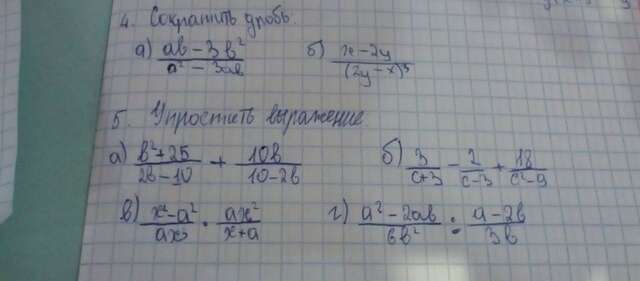 4. Сократить дробь.
а) (ab - 3b²)/(a² - 3ab) б) (x - 2y)/(2y - x)³
5. Упростить выражение
а) (b² + 25)/(2b - 10) + 10b/(10 - 2b) б) 3/(c+3) - 2/(c-3) + 18/(c² - 9)
в) (x² - a²)/(ax³) · ax²/(x+a) г) (a² - 2ab)/(6b²) : (a - 2b)/(3b)